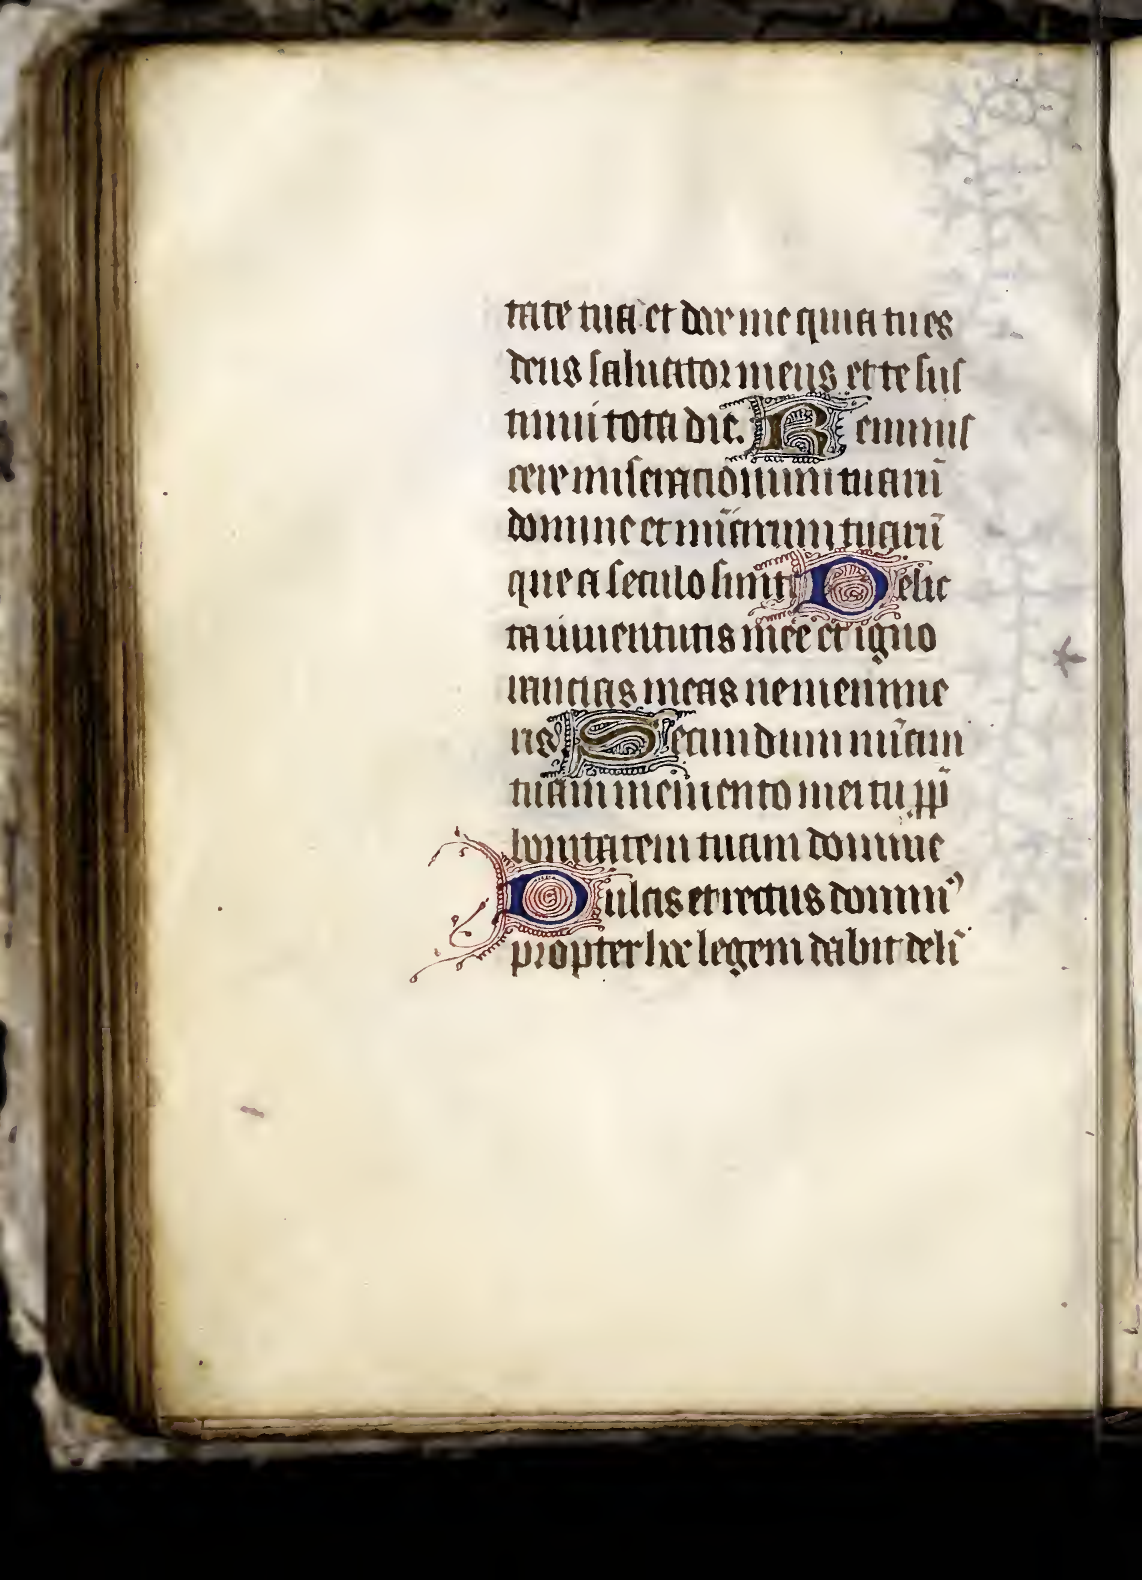 tate tua et doce me quia tu es
deus saluator meus et te sus
tinui tota die. Reminis
cere miseracionum tuarū
domine et mīarum tuarū
que a seculo sunt Delic
ta iuuentutis mee et igno
rancias meas ne memine
ris Secundum mīam
tuam memento mei tu pp̄
bonitatem tuam domine
Dulcis et rectus domin⁹
propter hoc legem dabit deli